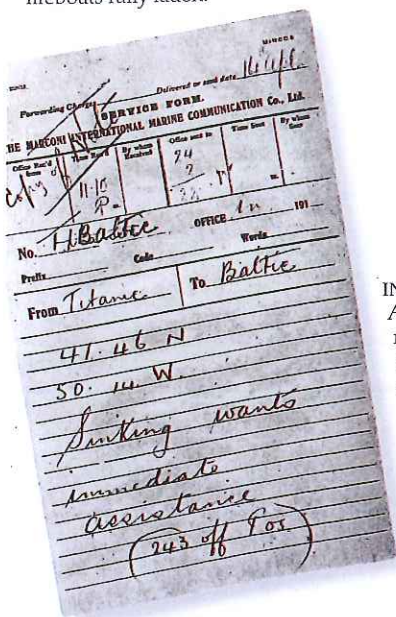 lifeboats fully laden.
Forwarding Charge
Delivered or send date 16/4/6
SERVICE FORM.
THE MARCONI INTERNATIONAL MARINE COMMUNICATION Co., Ltd.
Office Rec'd from Time Rec'd By whom Received Office sent to Time Sent By whom Sent
Copy 11-10 24
P 2
m.
No. HBaltic OFFICE 191
Prefix Code Words
From Titanic To Baltic
41.46 N
50.14 W.
Sinking wants
immediate
assistance
(243 off Pos)
IN
A